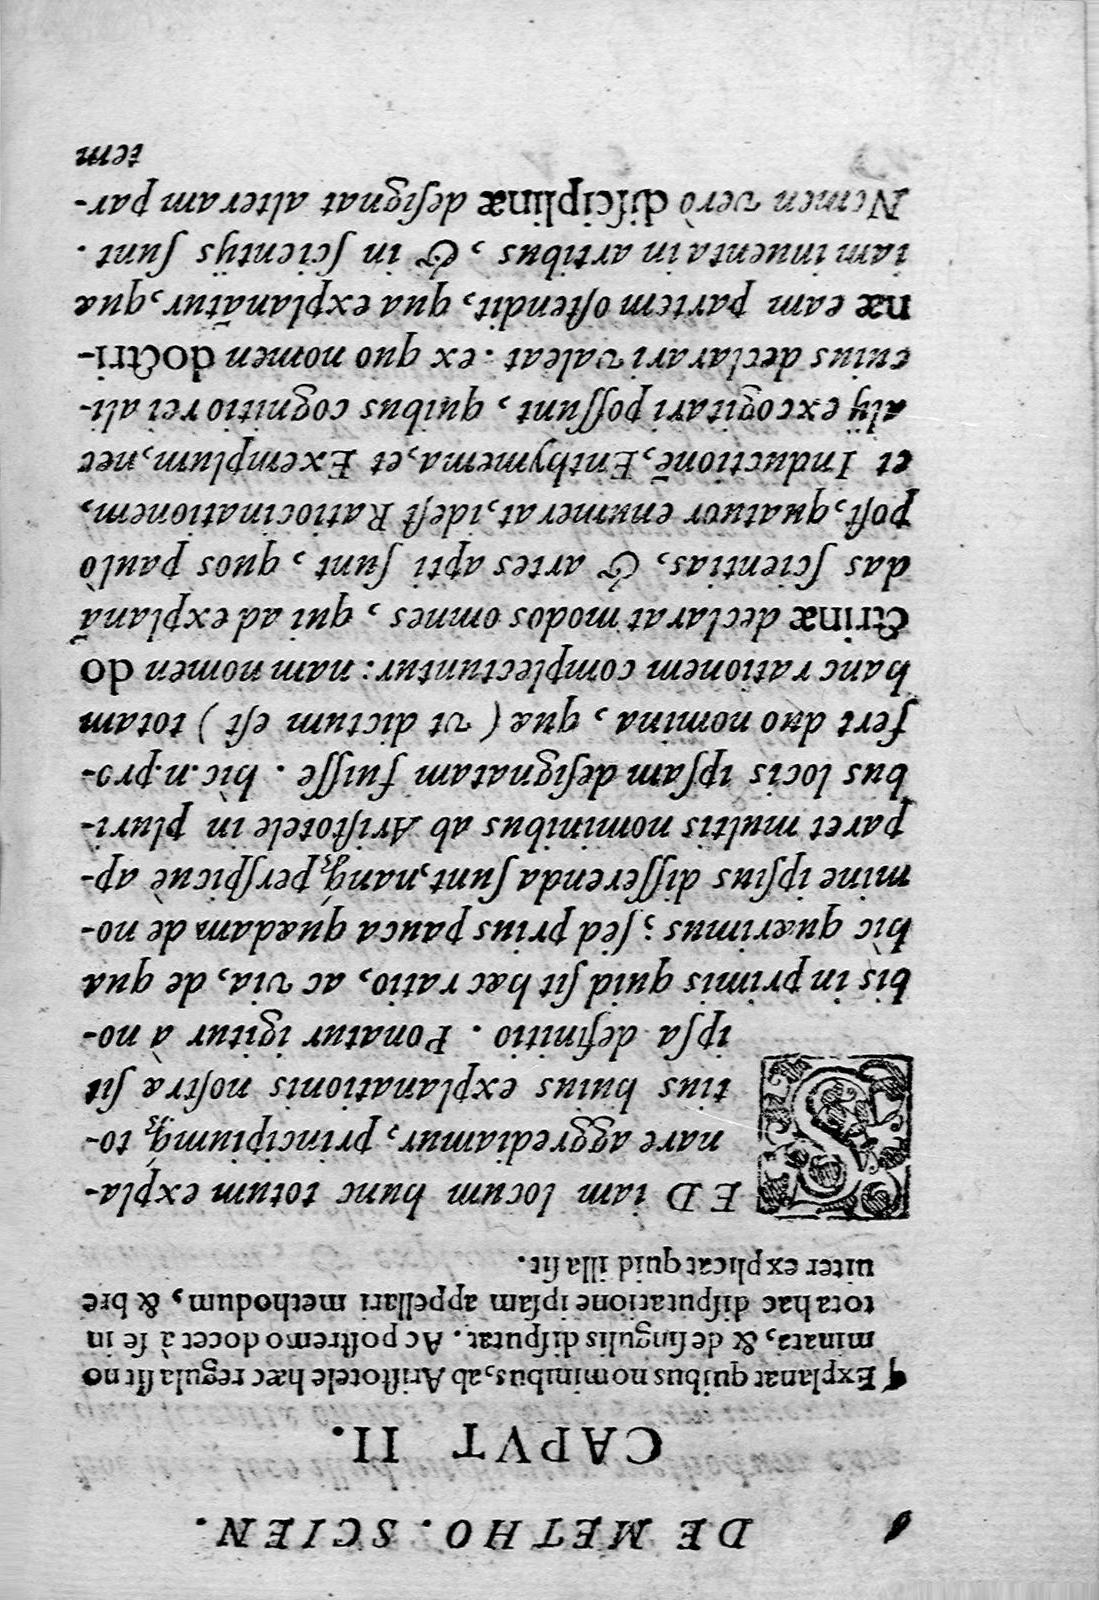 DE METHO. SCIEN.
CAPVT II.
¶ Explanat quibus nominibus, ab Aristotele hæc regula sit no
minata, & de singulis disputat. Ac postremo docet à se in
tota hac disputatione ipsam appellari methodum, & bre
uiter explicat quid illa sit.
SED iam locum hunc totum expla-
nare aggrediamur, principiumq́; to-
tius huius explanationis nostræ sit
ipsa definitio. Ponatur igitur à no-
bis in primis quid sit hæc ratio, ac via, de qua
hìc quærimus; sed prius pauca quædam de no-
mine ipsius disserenda sunt, nanq́; perspicuè ap-
paret multis nominibus ab Aristotele in pluri-
bus locis ipsam designatam fuisse. hìc.n.pro-
fert duo nomina, quæ (vt dictum est) totam
hanc rationem complectuntur: nam nomen do
ctrinæ declarat modos omnes, qui ad explanā
das scientias, & artes apti sunt, quos paulò
post, quatuor enumerat, idest Ratiocinationem,
et Inductionē, Enthymema, et Exemplum, nec
alij excogitari possunt, quibus cognitio rei ali-
cuius declarari valeat: ex quo nomen doctri-
næ eam partem ostendit, qua explanātur, quæ
iam inuenta in artibus, & in scientijs sunt.
Nomen verò disciplinæ designat alteram par-
tem